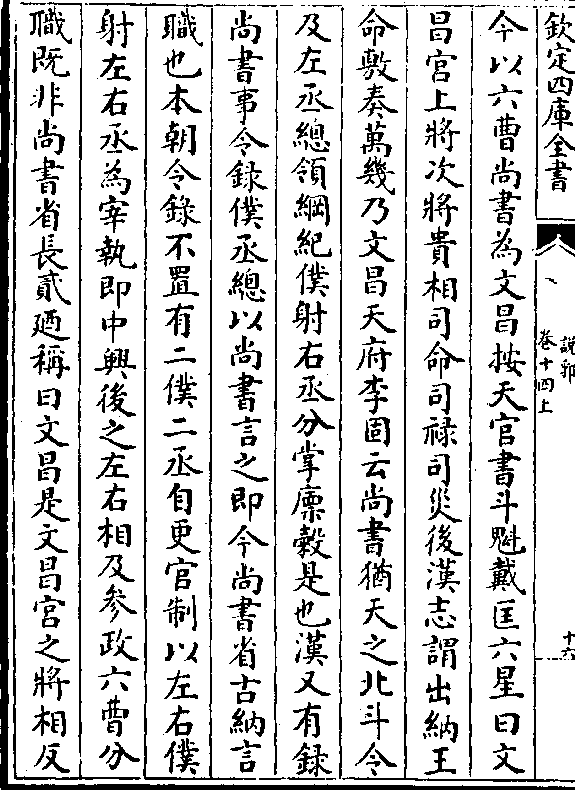 欽定四庫全書
說郛
卷十四上
十六
今以六曹尚書為文昌按天官書斗魁戴匡六星曰文
昌宮上將次將貴相司命司祿司災後漢志謂出納王
命敷奏萬幾乃文昌天府李固云尚書猶天之北斗令
及左丞總領綱紀僕射右丞分掌廩穀是也漢又有録
尚書事令録僕丞總以尚書言之即今尚書省古納言
職也本朝令錄不置有二僕二丞自更官制以左右僕
射左右丞為宰執即中興後之左右相及參政六曹分
職既非尚書省長貳廼稱曰文昌是文昌宮之將相反